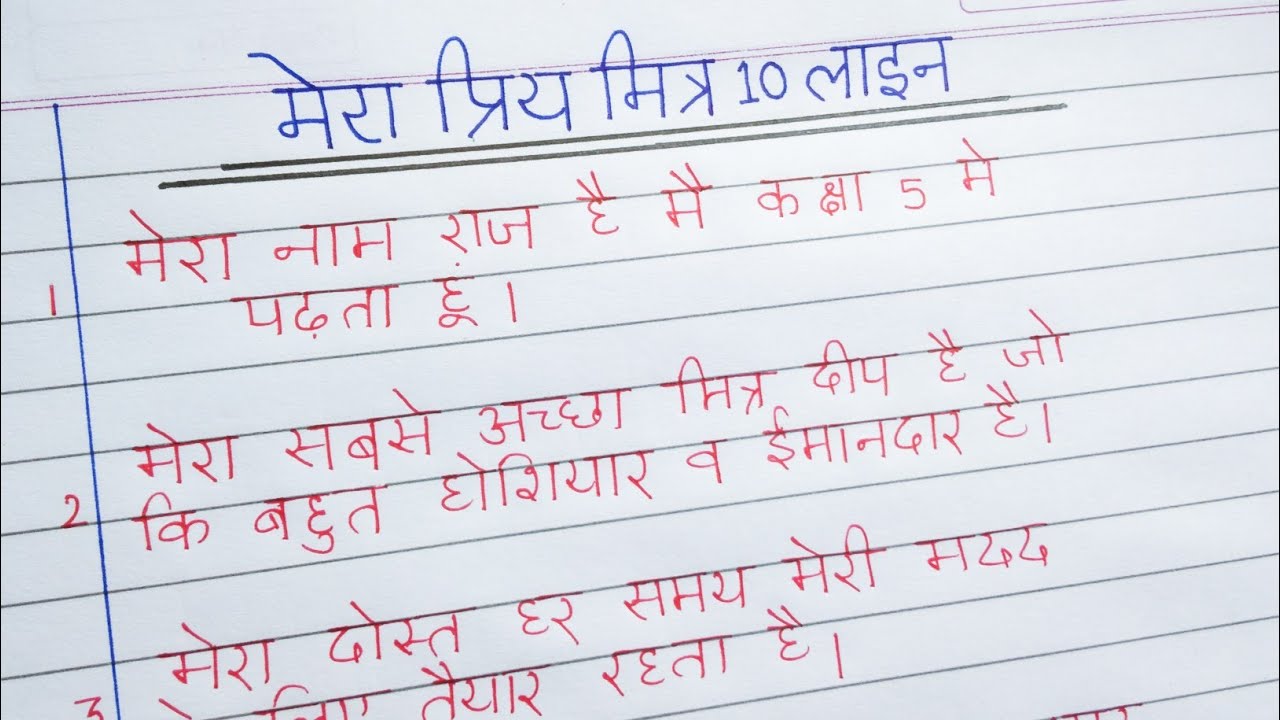 मेरा प्रिय मित्र 10 लाइन
मेरा नाम राज है मै कक्षा 5 मे
1 पढ़ता हूं।
मेरा सबसे अच्छा मित्र दीप है जो
2 कि बहुत होशियार व ईमानदार है।
मेरा दोस्त हर समय मेरी मदद
3 के लिए तैयार रहता है।